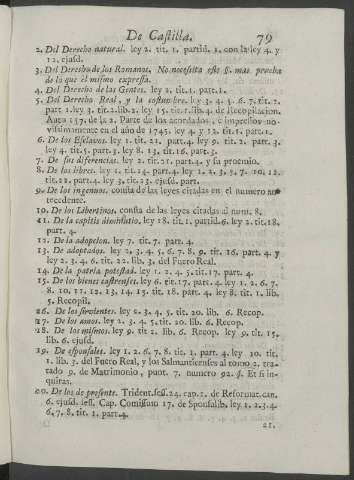 De Castilla. 79
2. Del Derecho natural. ley 2. tit. 1. partid. 1. con la ley 4. y
12. ejusd.
3. Del Derecho de los Romanos. No necesita este §. mas prueba
de lo que el mismo expressa.
4. Del Derecho de las Gentes. ley 2. tit. 1. part. 1.
5. Del Derecho Real, y la costumbre. ley 3. 4. 5. 6. 7. tit. 2.
part. 1. ley 3. tit. 1. part. 1. ley 15. tit. 1. lib. 4. de Recopilacion.
Auto 137. de la 2. Parte de los acordados, è impressos no-
vissimamente en el año de 1745. ley 4. y 12. tit. 1. part. 1.
6. De los Esclavos. ley 1. tit. 21. part. 4. ley 9. tit. 2. part. 3.
ley 4. tit. 5. part. 3. ley 8. 13. tit. 16. part. 3.
7. De sus diferencias. ley 2. tit. 21. part. 4. y su proemio.
8. De los libres. ley 1. tit. 14. part. 4. ley 1. 2. 3. 5. 7. 10. 12.
tit. 22. part. 4. ley 3. tit. 23. ejusd. part.
9. De los ingenuos. consta de las leyes citadas en el numero an-
tecedente.
10. De los Libertinos. consta de las leyes citadas al num. 8.
11. De la capitis diminutio, ley 18. tit. 1. partid. 6. ley 2. tit. 18.
part. 4.
12. De la adopcion. ley 7. tit. 7. part. 4.
13. De adoptados. ley 2. 3. 4. 5. 6. 7. 8. 9. tit. 16. part. 4. y
ley 2. 3. 4. 6. tit. 22. lib. 3. del Fuero Real.
14. De la patria potestad. ley 1. 2. 4. 5. tit. 17. part. 4.
15. De los bienes castrenses. ley 6. tit. 17. part. 4. ley 1. 2. 6. 7.
8. 10. 11. 12. 13. 14. 15. tit. 18. part. 4. ley 8. tit. 1. lib.
5. Recopil.
16. De los sirvientes. ley 2. 3. 4. 5. tit. 20. lib. 6. Recop.
17. De los amos. ley 2. 3. 4. 5. tit. 20. lib. 6. Recop.
18. De los mismos. ley 9. tit. 2. lib. 6. Recop. ley 9. tit. 15.
lib. 6. ejusd.
19. De esponsales. ley 1. 2. 6. 7. 8. tit. 1. part. 4. ley 10. tit.
1. lib. 3. del Fuero Real, y los Salmanticenses al tomo 2. tra-
tado 9. de Matrimonio, punt. 7. numero 92. §. Et si in-
quiras.
20. De los de presente. Trident. sess. 24. cap. 1. de Reformat. can.
6. ejusd. sess. Cap. Comissum 17. de Sponsalib. ley 1. 2. 3. 4.
6. 7. 8. tit. 1. part. 4.
21.